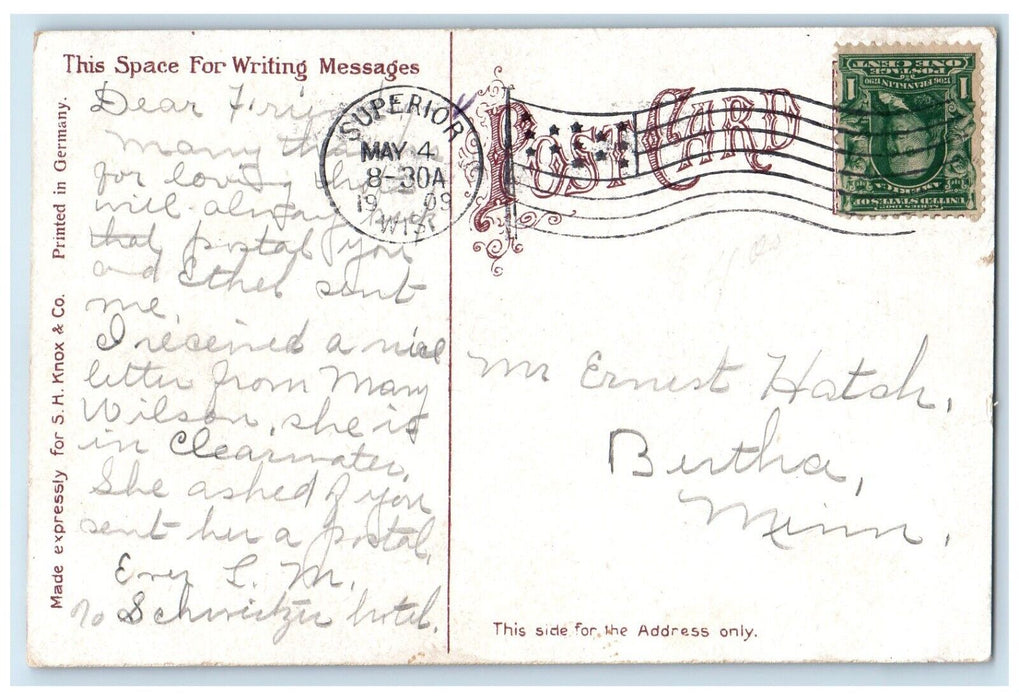 This Space For Writing Messages
Dear Friend
Many thanks
for loving
will always
that postal you
and Ethel sent
me.
I received a nice
letter from Mary
Wilson, she is
in Clearwater.
She asked if you
sent her a postal.
Ever L. M.
℅ Schweitzer hotel.
Printed in Germany.
Made expressly for S. H. Knox & Co.
SUPERIOR
MAY 4
8-30A
1909
WIS.
POST CARD
ONE CENT
POSTAGE
1 1
FRANKLIN
SERIES 1902
UNITED STATES OF
AMERICA
Mr Ernest Hatch,
Bertha,
Minn.
This side for the Address only.